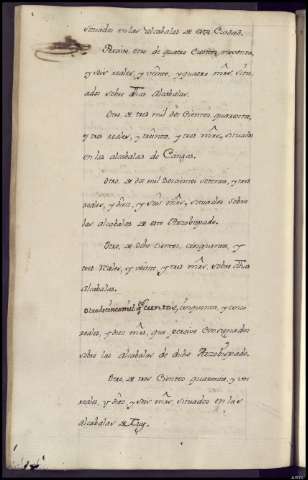 situados en las Alcabalas de esta Ciudad.
Otro de quatro Cientos noventa,
y seis reales, y veinte, y quatro mrs, situ-
ados sobre dhas Alcabalas.
Otro de tres mil dos Cientos quarenta,
y tres reales, y treinta, y tres mrs, situados
en las alcabalas de Cangas.
Otro de dos mil Doscientos setenta, y tres
reales, y diez, y seis mrs, situados sobre
las alcabalas de este Arzobispado.
Otro, de Ocho Cientos, cinquenta, y
tres reales, y veinte, y tres mrs, sobre dhas
Alcabalas.
cinquenta, y cinco
reales, y diez mrs, que percive Consignados
sobre las Alcabalas de dicho Arzobispado.
Otro, de tres Cientos quarenta, y un
reales, y diez, y seis mrs, situados en las
alcabalas de Tuy.